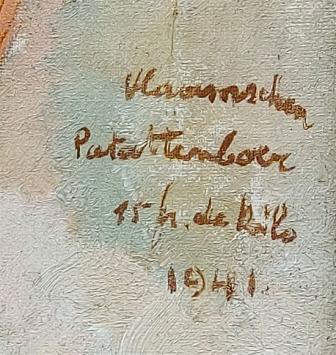 Vlaamschen
Patattenboer
15 h. de Kilo
1941.